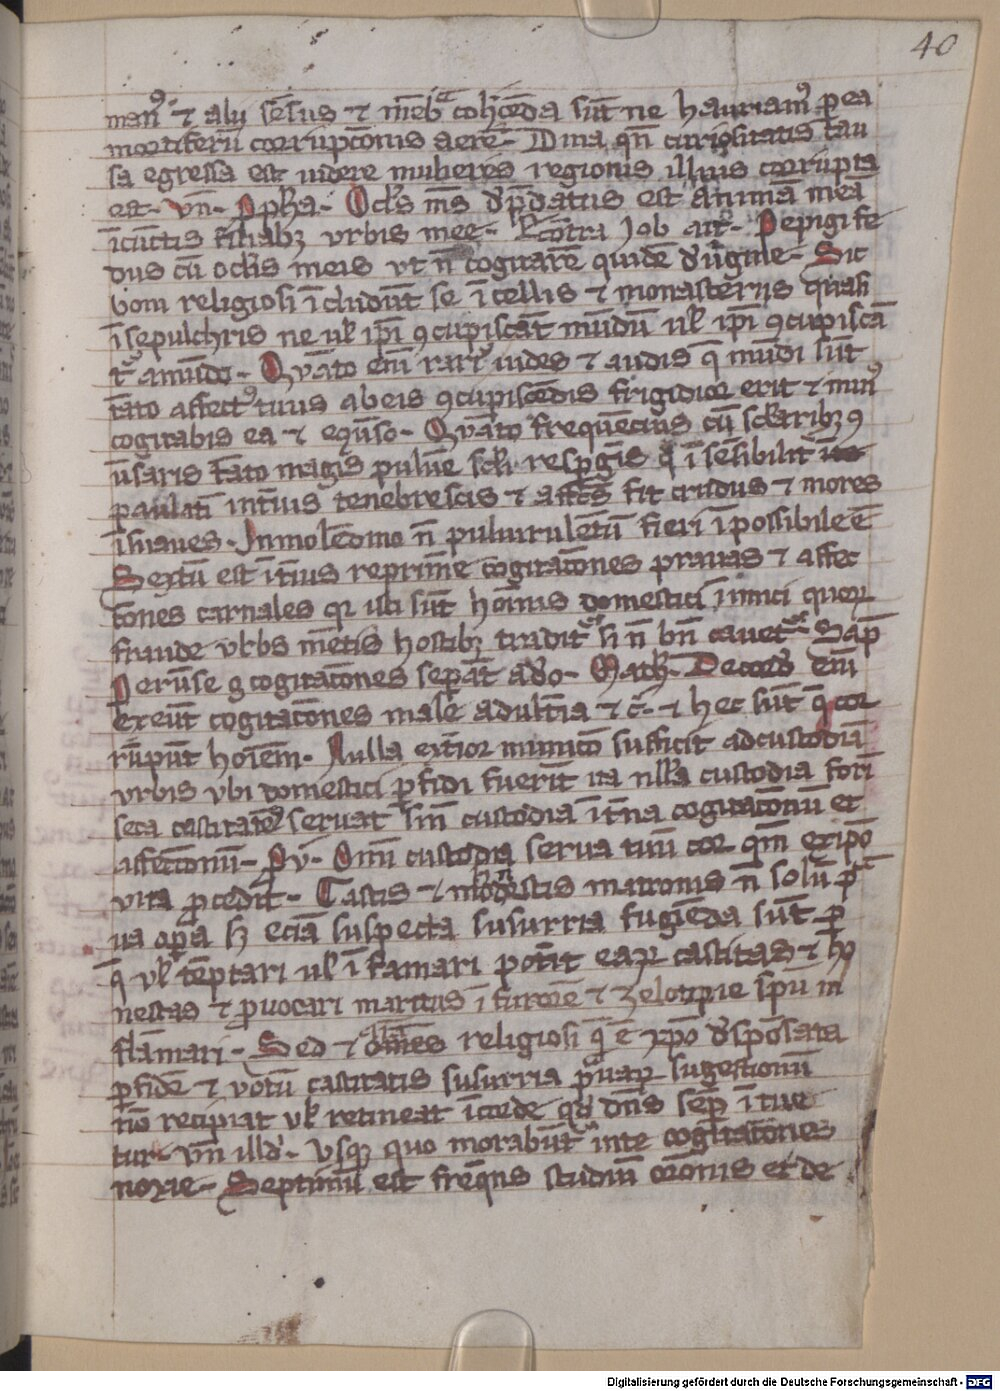 40
man⁹ ⁊ alij sēsus ⁊ mēbᵃ cohc̄eda sūt ne hauriam⁹ p ea
mortiferū corrupcōnis aerē. Dina qn̄ curiositatis cau
sa egressa est uidere mulieres regionis illius corrupta
est. Vn̄. Ocl̄s m̄s dp̄datus est animā meā
ī cūctis filiabꝫ vrbis mee. Ecōtra Job ait. Pepigi fe
dus cū oclis meis vt n̄ cogitarē quidē d' ūgine. Sic
boni religiosi īcludūt se ī cellis ⁊ monasterijs quasi
ī sepulchris ne ul ip̄i ꝯcupiscāt mūdū ul ip̄i ꝯcupiscā
tʳ a mūdo. Quāto eni rariʳ uides ⁊ audis q̄ mūdi sūt
tāto affect⁹ tuus ab eis ꝯcupiscēdis frigidior erit ⁊ min⁹
cogitabis ea ⁊ equso. Quāto frequēcius cū sclaribꝫ ꝯ
ūsaris tāto magis pulūe scli respgis q̄ ī sēsibilit
paulati intius tenebrescis ⁊ affcs fit crudus ⁊ mores
īsuaues. In molēdino n̄ puluirulētū fieri īpossibile ē
Sextū est īt̄ius reprimē cogitacōnes prauas ⁊ affec
cōnes carnales qr isti sūt hōinis domestici inimici quoꝝ
fraude vrbs mētis hostibꝫ tradit si n̄ bn̄ cauet. Sap̄
Peruse g cogitacōnes sepāt a d'o. Math. De cord' eni
exeūt cogitacōnes male adultia ⁊ c̄. ⁊ hec sūt q̄ cor
rūpūt hoīem. Nulla ext̄ior municō sufficit ad custodiā
vrbis vbi domestici pfidi fuerīt ita nlla custodia fori
seca castitatē seruat sin̄ custodia īt̄na cogitacōnū et
affeccōnū. Pv. Omi custodia serua tuū cor qm̄ ex ipo
vita pcedit. Castis ⁊ modestis matronis n̄ solū pᵃ
ua opa sꝫ eciā suspecta susurria fugiēda sūt p
q̄ ul tēptari ul īfamari potit eaꝝ castitas ⁊ ho
nestas ⁊ puocari maritus ī furorē ⁊ zelotipie spū in
flāmari. Sed ⁊ religiosi q̄ ē xpo d'spōsata
p fidē ⁊ votū castitatis susurria pᵃuaꝝ sugestionū
nō recipiat ul retineat ī corde qd' dn̄s sep̄ ītue
tur. Vn̄ illd'. Vsqꝫ quo morabūtʳ in te cogitacōnes
noxie. Septimū est freq̄ns studiū orōnis et de
Digitalisierung gefördert durch die Deutsche Forschungsgemeinschaft - DFG